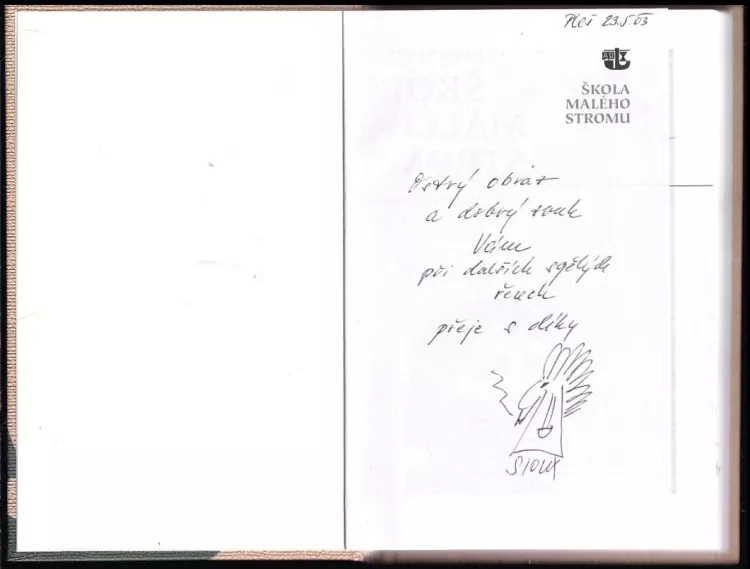 Pleš 23.5.03
ŠKOLA
MALÉHO
STROMU
Ostrý obraz
a dobrý zvuk
Vám
při dalších
řekách
přeje s díky
SIOUX